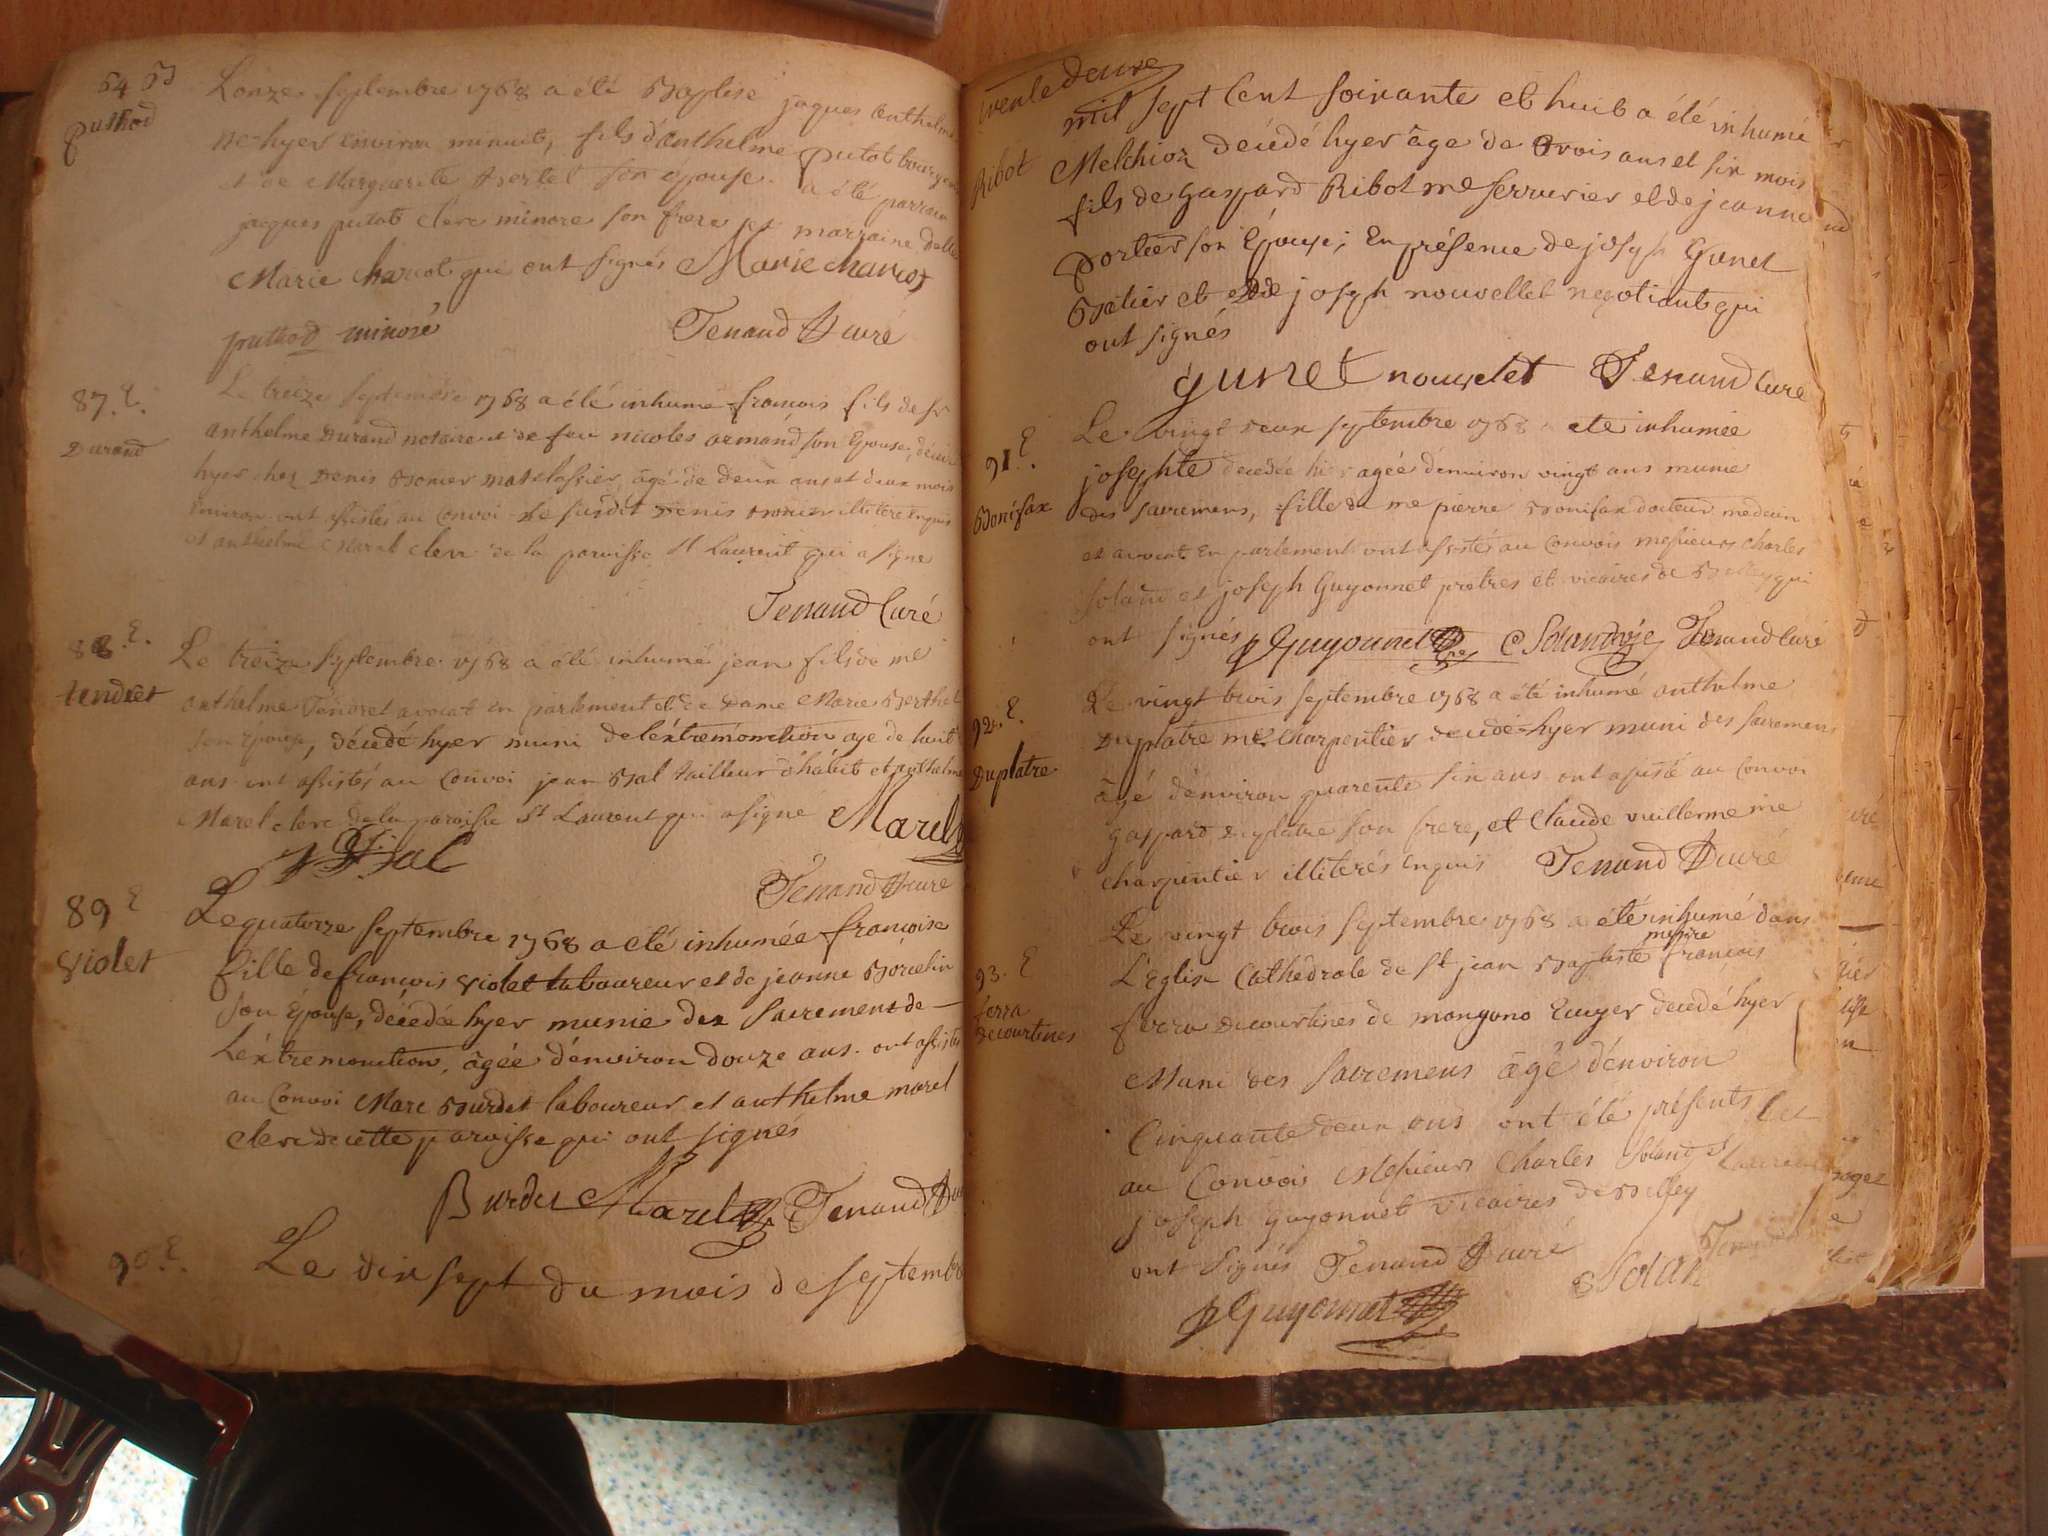 54 B
puthod
L'onze septembre 1768 a été Baptisé jaques anthelme
né hyer environ minuit, fils d'anthelme putot bourgeois
et de Marguerite Bertet son épouse. a été parrain
jacques putot clerc minoré son frere et marraine delle
Marie charcot qui ont signés Marie charcot
puthod minoré Tenand Curé
87.E.
Durand
Le treize septembre 1768 a été inhumé francois fils de sr
anthelme Durand notaire et de feu nicole armand son Epouse, décédé
hyer chez Denis matelassier, agé de deux ans et deux mois
environ ont assistés au Convoi le susdit Denis illitere enquis
et anthelme Marel clerc de la paroisse St Laurent qui a signé
Tenand Curé
88.E.
tendret
Le treize septembre 1768 a été inhumé jean fils de me
anthelme Tendret avocat en parlement et de Dame Marie Berthet
son Epouse, décédé hyer muni de l'éxtremonction agé de huit
ans ont assistés au Convoi jean Bal tailleur d'habit et anthelme
Marel clerc de la paroisse St Laurent qui a signé Marel
J Bal
Tenand Curé
89 E
Violet
Le quatorze septembre 1768 a été inhumée francoise
fille de francois Violet laboureur et de jeanne
son Epouse, décédée hyer munie des Sacrement de
L'éxtremonction, agée d'énviron douze ans. ont assistés
au Convoi Marc Burdet laboureur et anthelme marel
Clerc de cette paroisse qui ont signés
Burdet Marel Tenand Curé
90.E.
Le dix sept du mois de septembre
trente deuxe
Ribot
mil sept cent soixante et huit a été inhumé
Melchior décédé hyer âge de trois ans et six mois
fils de Gaspard Ribot me serrurier et de jeanne
portier son Epouse; En présence de joseph Gunet
Batier et de joseph nouvellet negotiants qui
ont signés
gunet nouvelet Tenand Curé
91.E.
Bonifax
Le vingt deux septembre 1768 a été inhumée
josephte décédée hier agée d'environ vingt ans munie
des sacremens, fille de me pierre Bonifax docteur medecin
et avocat En parlement ont assistés au Convois messieurs charles
Soland et joseph Guyonnet prêtres et vicaires de Belley qui
ont signés J Guyonnet C Soland vic Tenand Curé
92.E.
Duplatre
Le vingt trois septembre 1768 a été inhumé anthelme
Duplatre me charpentier decédé hyer muni des sacremens
âgé d'énviron quarente six ans ont assisté au Convoi
gaspard duplatre son frere, et Claude vuillerme me
charpentier illiterés enquis Tenand Curé
93.E
ferra
decourtines
Le vingt trois septembre 1768 a été inhumé dans
L'eglise Cathédrale de St jean Baptiste messire francois
ferra decourtines de mongono Ecuyer décédé hyer
Muni des sacremens âgé d'énviron
Cinquante deux ans ont été présents
au Convois Messieurs Charles Soland et
joseph guyonnet vicaires de Belley
ont signés Tenand Curé
J Guyonnet Solan